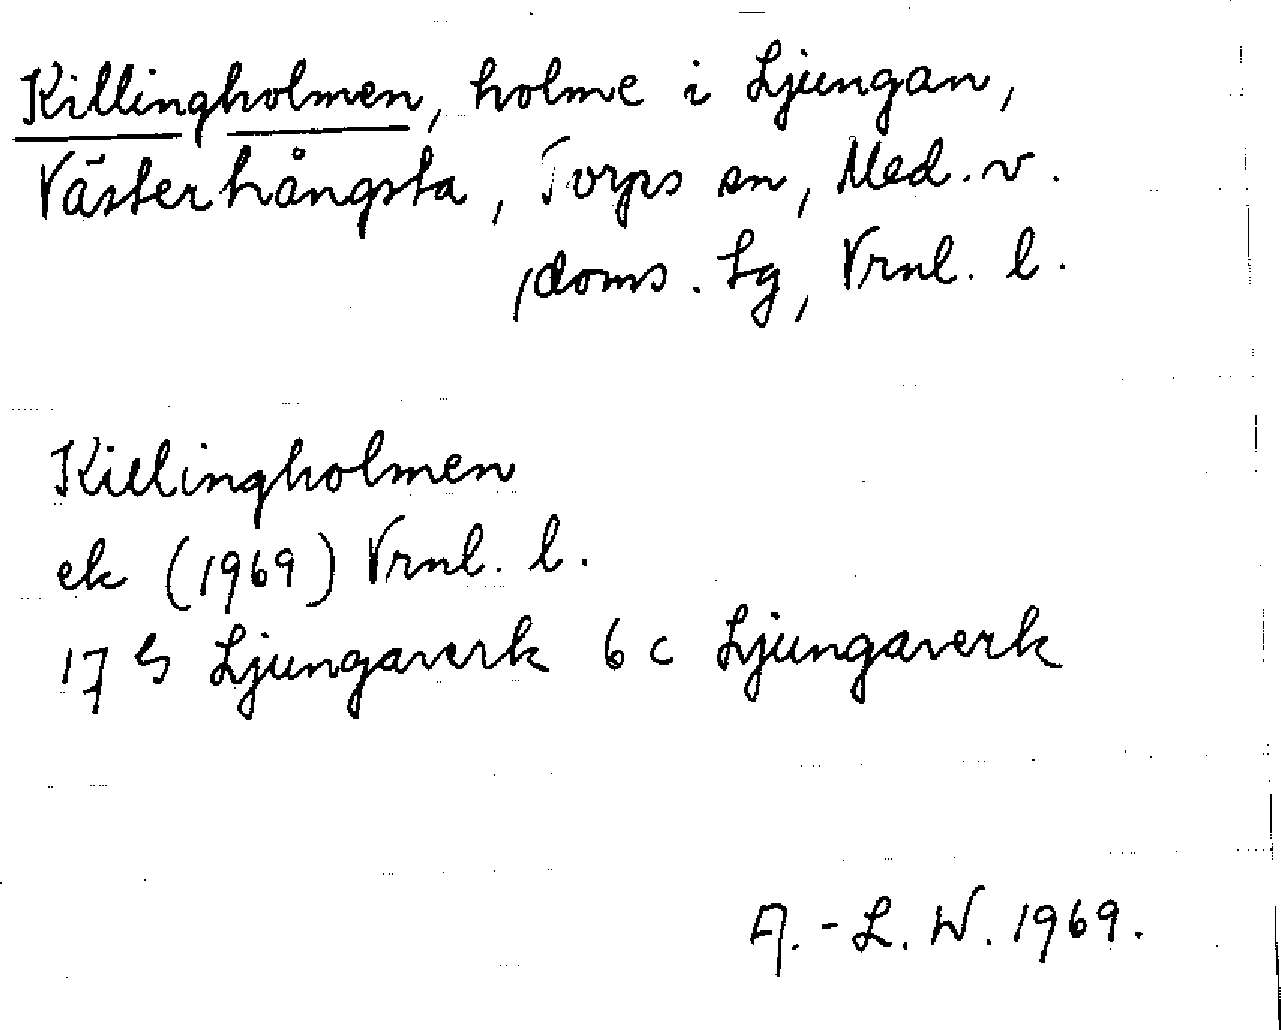 Killingholmen, holme i Ljungan,
Västerhångsta, Torps sn, Med. v.
doms. Lg, Vrnl. l.
Killingholmen
ek (1969) Vrnl. l.
17 G Ljungaverk 6 c Ljungaverk
A.-L. W. 1969.